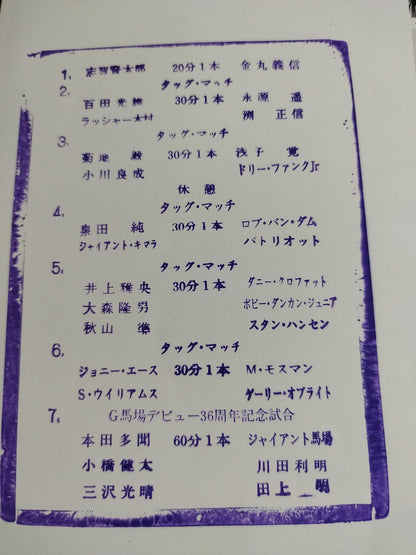 1. 志賀賢太郎 20分1本 金丸義信
2. タッグ・マッチ
百田光雄 30分1本 永源遥
ラッシャー木村 渕正信
3. タッグ・マッチ
菊地毅 30分1本 浅子覚
小川良成 ドリー・ファンクJr
休憩
4. タッグ・マッチ
泉田純 30分1本 ロブ・バン・ダム
ジャイアント・キマラ パトリオット
5. タッグ・マッチ
井上雅央 30分1本 ダニー・クロファット
大森隆男 ボビー・ダンカン・ジュニア
秋山準 スタン・ハンセン
6. タッグ・マッチ
ジョニー・エース 30分1本 M・モスマン
S・ウイリアムス ゲーリー・オブライト
7. G馬場デビュー36周年記念試合
本田多聞 60分1本 ジャイアント馬場
小橋健太 川田利明
三沢光晴 田上 明